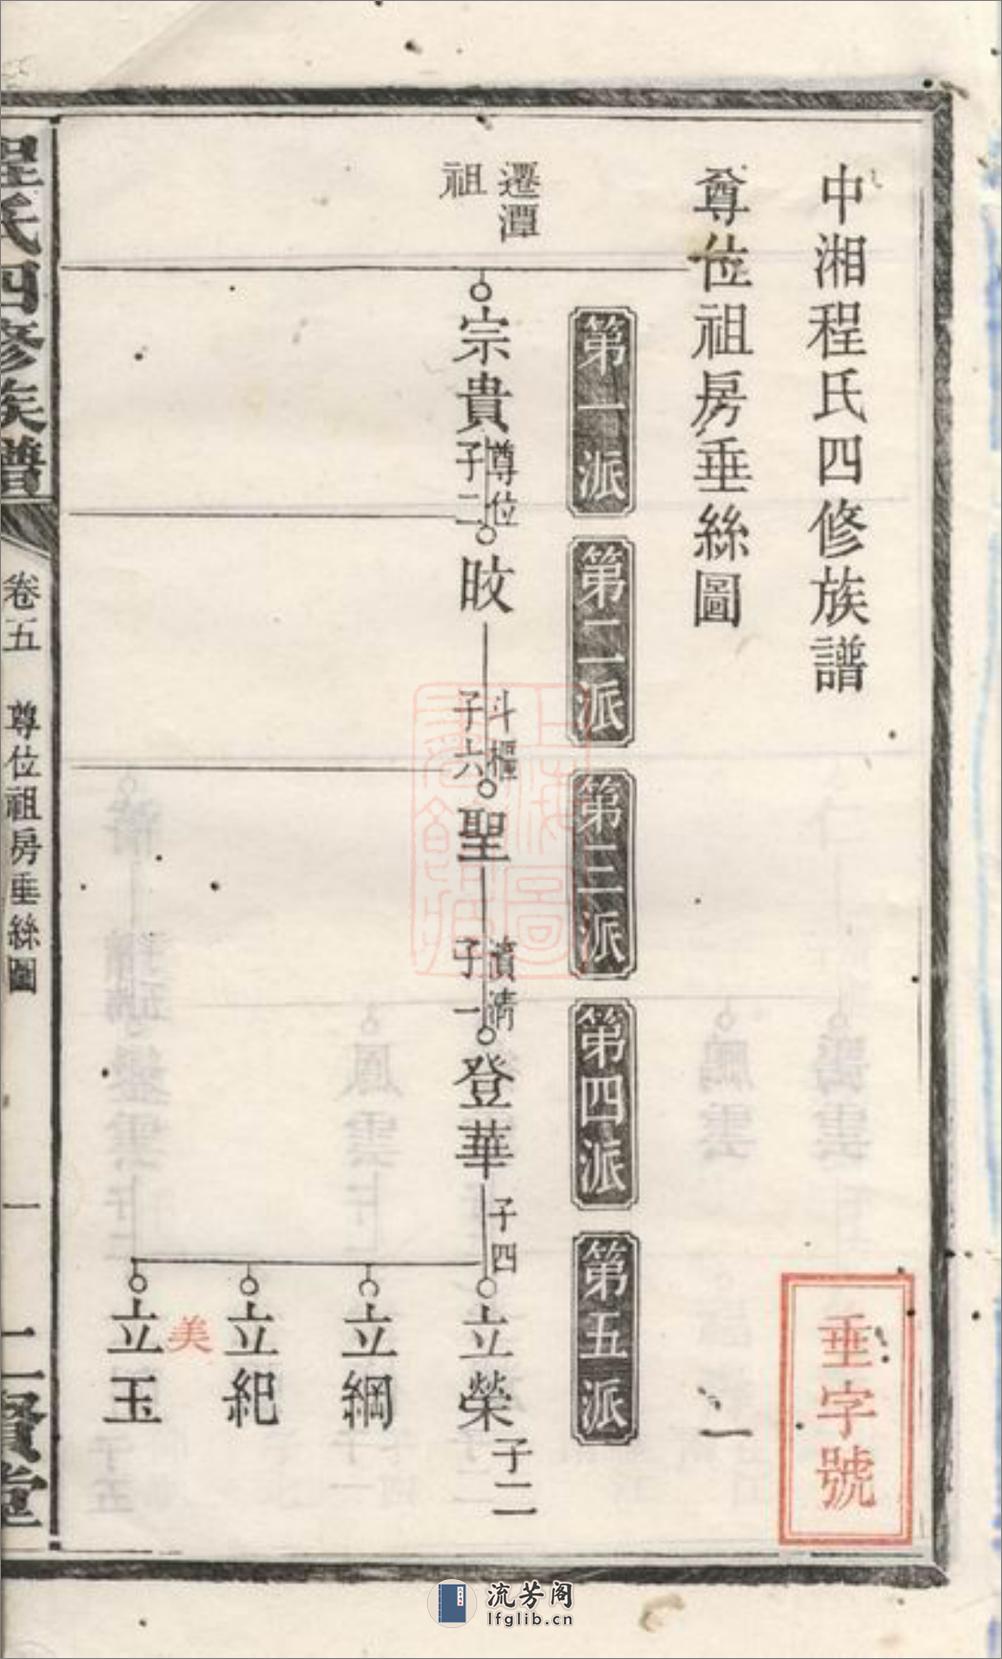 中湘程氏四修族譜
尊位祖房垂絲圖
一
垂字號
第一派
第二派
第三派
第四派
第五派
遷潭
祖
宗貴
尊位
子二
旼
斗樞
子六
聖
濱清
子一
登華
子四
立榮
子二
立綱
立紀
美
立玉
程氏四修族譜
卷五 尊位祖房垂絲圖
一
二賢堂
流芳阁
lfglib.cn